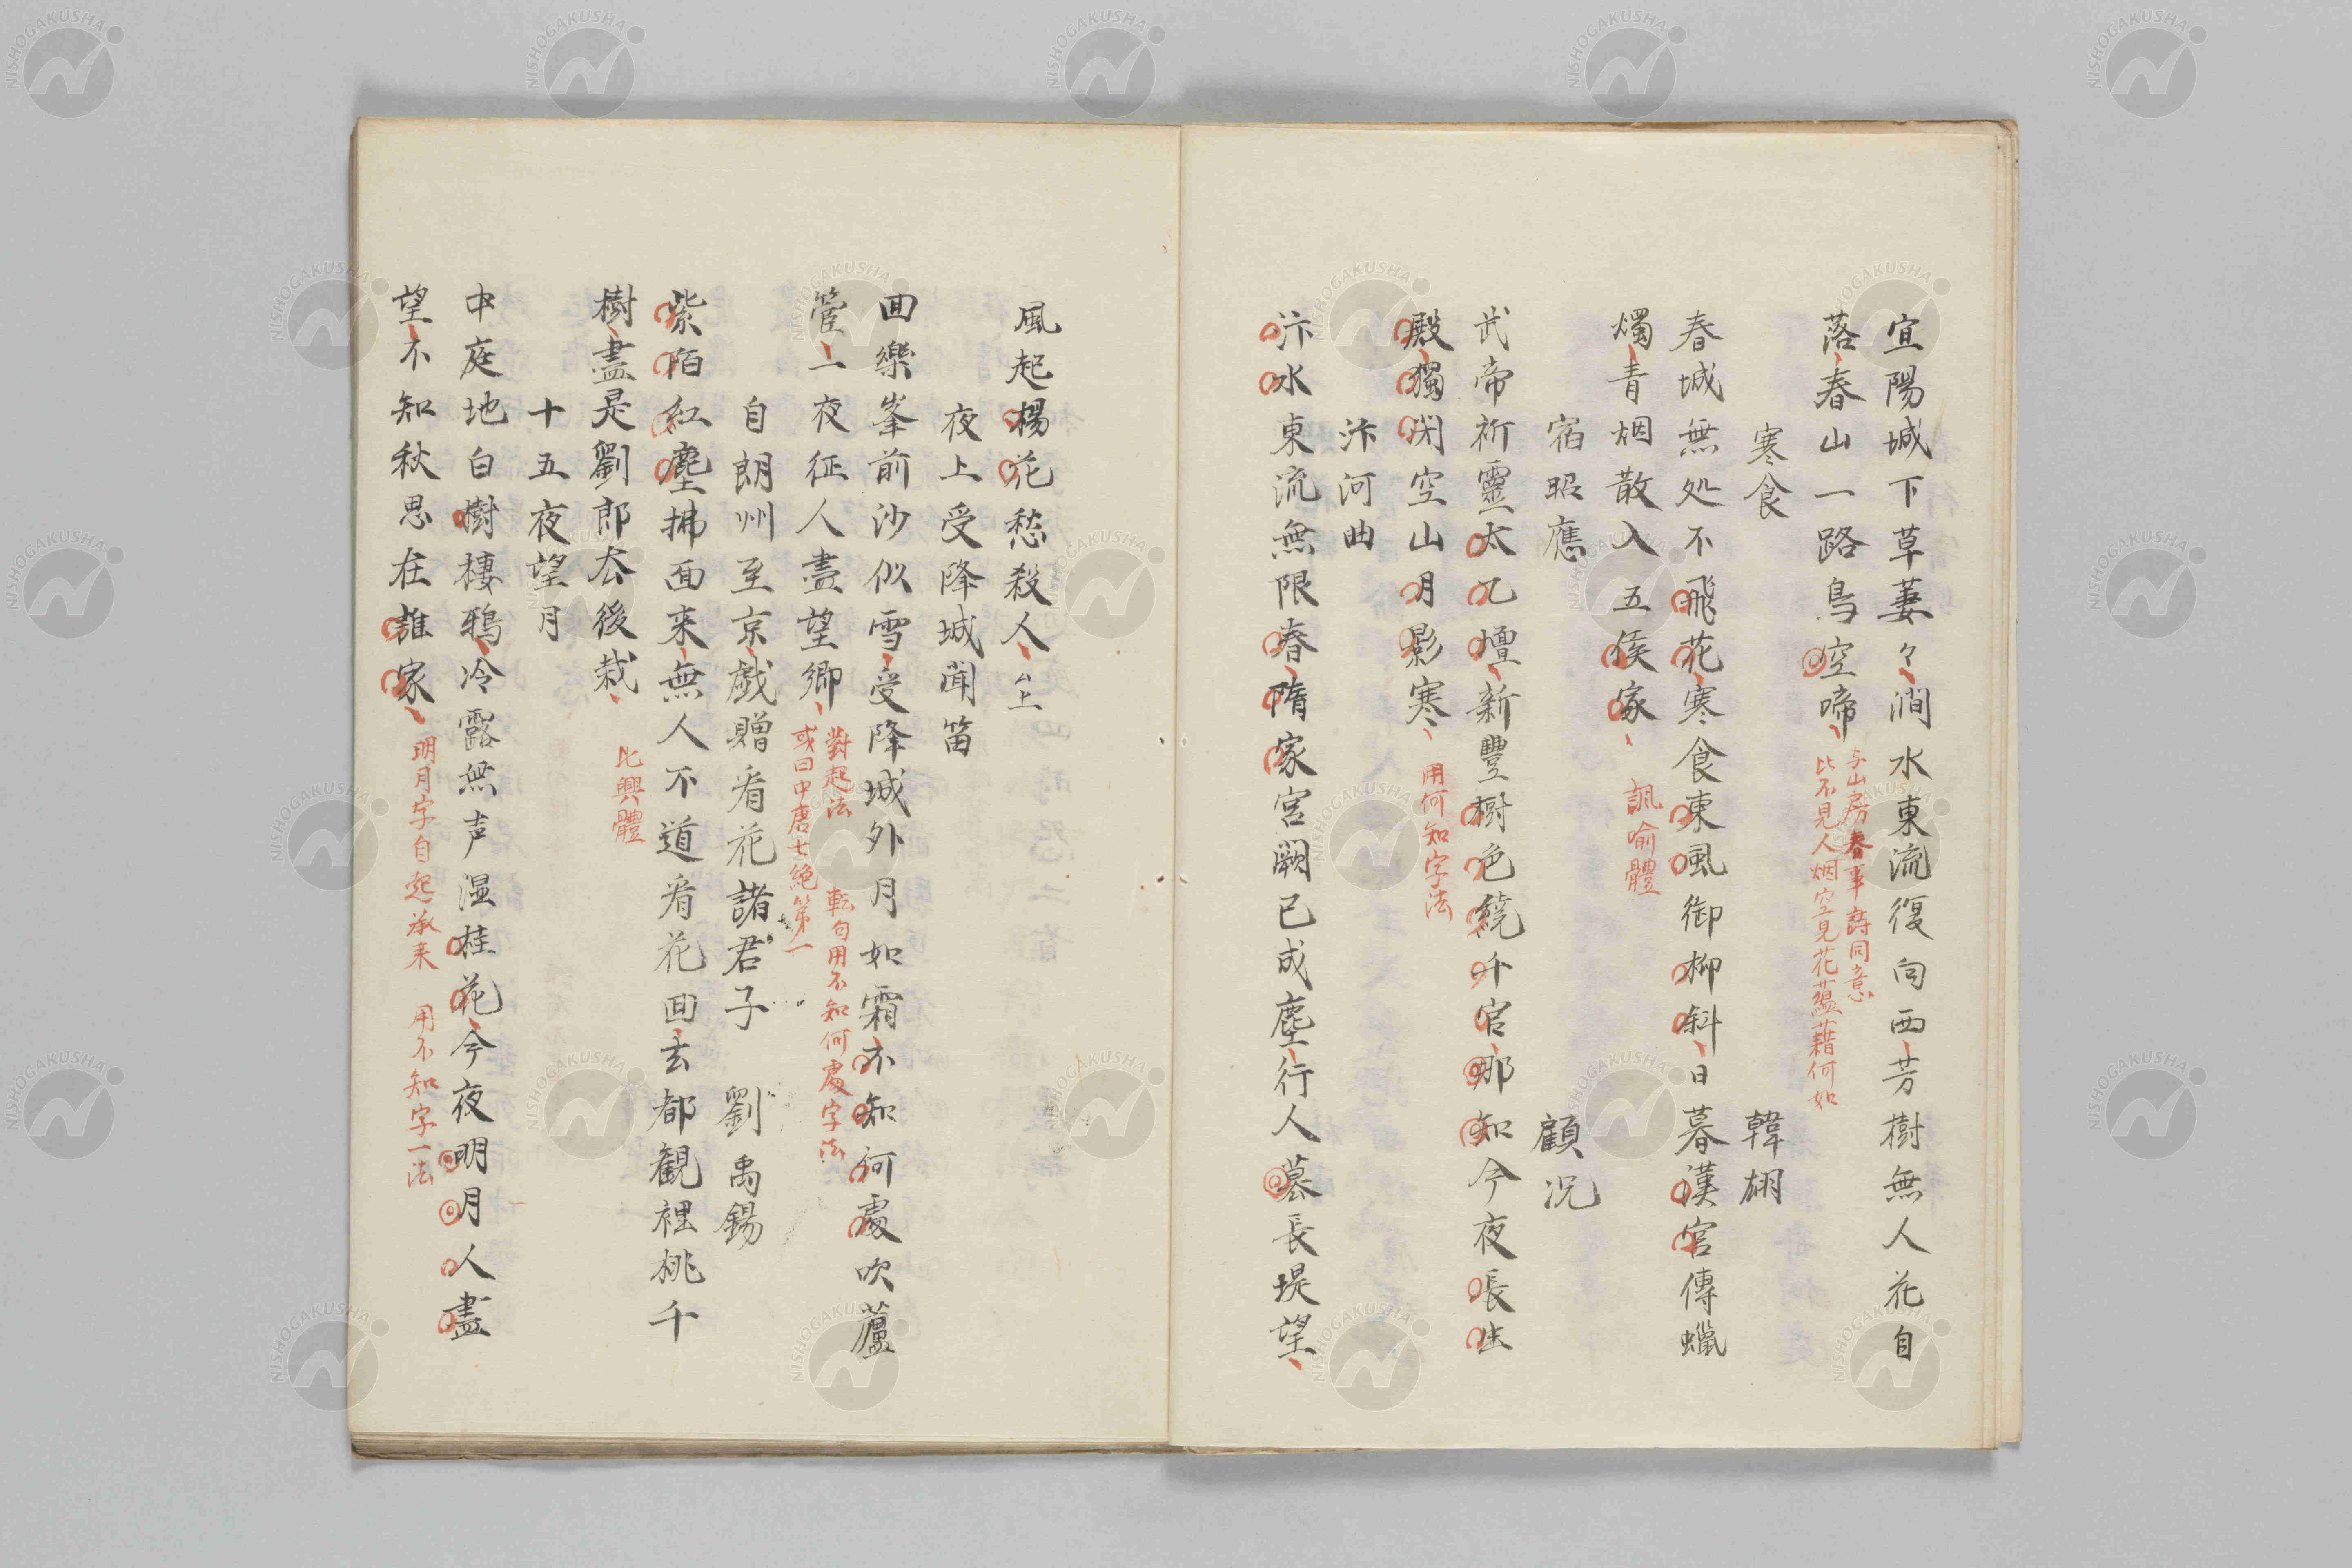 宜陽城下草萋々澗水東流復向西芳樹無人花自
落春山一路鳥空啼
与山房春事詩同意
比不見人烟空見花蘊藉何如
寒食　韓翃
春城無処不飛花寒食東風御柳斜日暮漢宮傳蠟
燭青烟散入五侯家
諷喻體
宿昭應　顧況
武帝祈靈太乙壇新豐樹色繞千官那知今夜長生
殿獨閉空山月影寒
用何知字法
汴河曲
汴水東流無限春隋家宮闕已成塵行人莫長堤望
風起楊花愁殺人
夜上受降城聞笛
回樂峯前沙似雪受降城外月如霜不知何處吹蘆
管一夜征人盡望鄉
對起法　転句用不知何處字法
或曰中唐七絶第一
自朗州至京戯贈看花諸君子　劉禹錫
紫陌紅塵拂面来無人不道看花回玄都観裡桃千
樹盡是劉郎去後栽
比興體
十五夜望月
中庭地白樹棲鴉冷露無声湿桂花今夜明月人盡
望不知秋思在誰家
明月字自起承来　用不知字一法
NISHOGAKUSHA